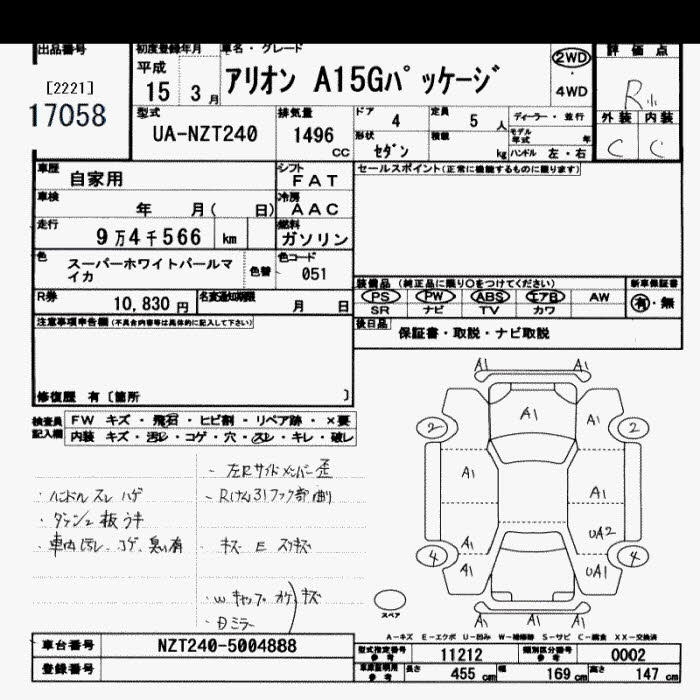 出品番号
[2221]
17058
初度登録年月
平成
15 3月
車名・グレード
アリオン A15Gパッケージ
2WD
・
4WD
評価点
R
外装 内装
C C
型式
UA-NZT240
排気量
1496
CC
ドア
4
定員
5 人
ディーラー・並行
形状
セダン
積載
kg
モデル年式 年
ハンドル 左・右
車歴
自家用
シフト
FAT
車検
年 月( 日)
冷房
AAC
走行
9万4千566 km
燃料
ガソリン
色
スーパーホワイトパールマイカ
色替
色コード
051
R券
10,830 円
名変通知期限
月 日
セールスポイント(正常に機能するものに限ります)
装備品 (純正品に限り○をつけてください)
PS PW ABS エアB AW
SR ナビ TV カワ
新車保証書
有・無
後日品
保証書・取説・ナビ取説
注意事項申告欄(不具合内容等は具体的に記入して下さい)
修復歴 有〔箇所 〕
検査員記入欄
FW キズ・飛石・ヒビ割・リペア跡・×要
内装 キズ・汚レ・コゲ・穴・スレ・キレ・破レ
・左Rサイドメンバー歪
・ハンドル スレ ハゲ
・ダッシュ板 ウキ
・車内汚レ、コゲ、臭い有
・キズ E スリキズ
・Wキャップ オケ キズ
・Dミラー
A1 A1
A1
A1 A1
2 2
A1 A1
UA2
4 4
A1
A1 UA1
A1 A1 A1
スペア
A-キズ E-エクボ U-凹み W-補修跡 S-サビ C-腐食 XX-交換済
車台番号
NZT240-5004888
登録番号
型式指定番号
参考
11212
類別区分番号
参考
0002
車庫証明用
参考
長さ
455 cm
幅
169 cm
高さ
147 cm